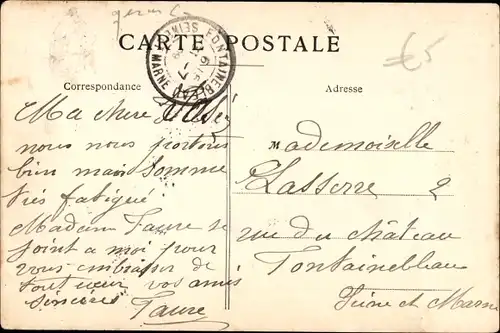 CARTE POSTALE
FONTAINEBLEAU
SEINE & MARNE
€5
Correspondance
Adresse
Ma chere
nous nous portons
bien mais somme
très fatigué
Madam Faure se
joint a moi pour
vous embrasser de
tout cœur vos amis
sincères
Faure
Mademoiselle
Lasserre 2
rue du château
Fontainebleau
Seine et Marne